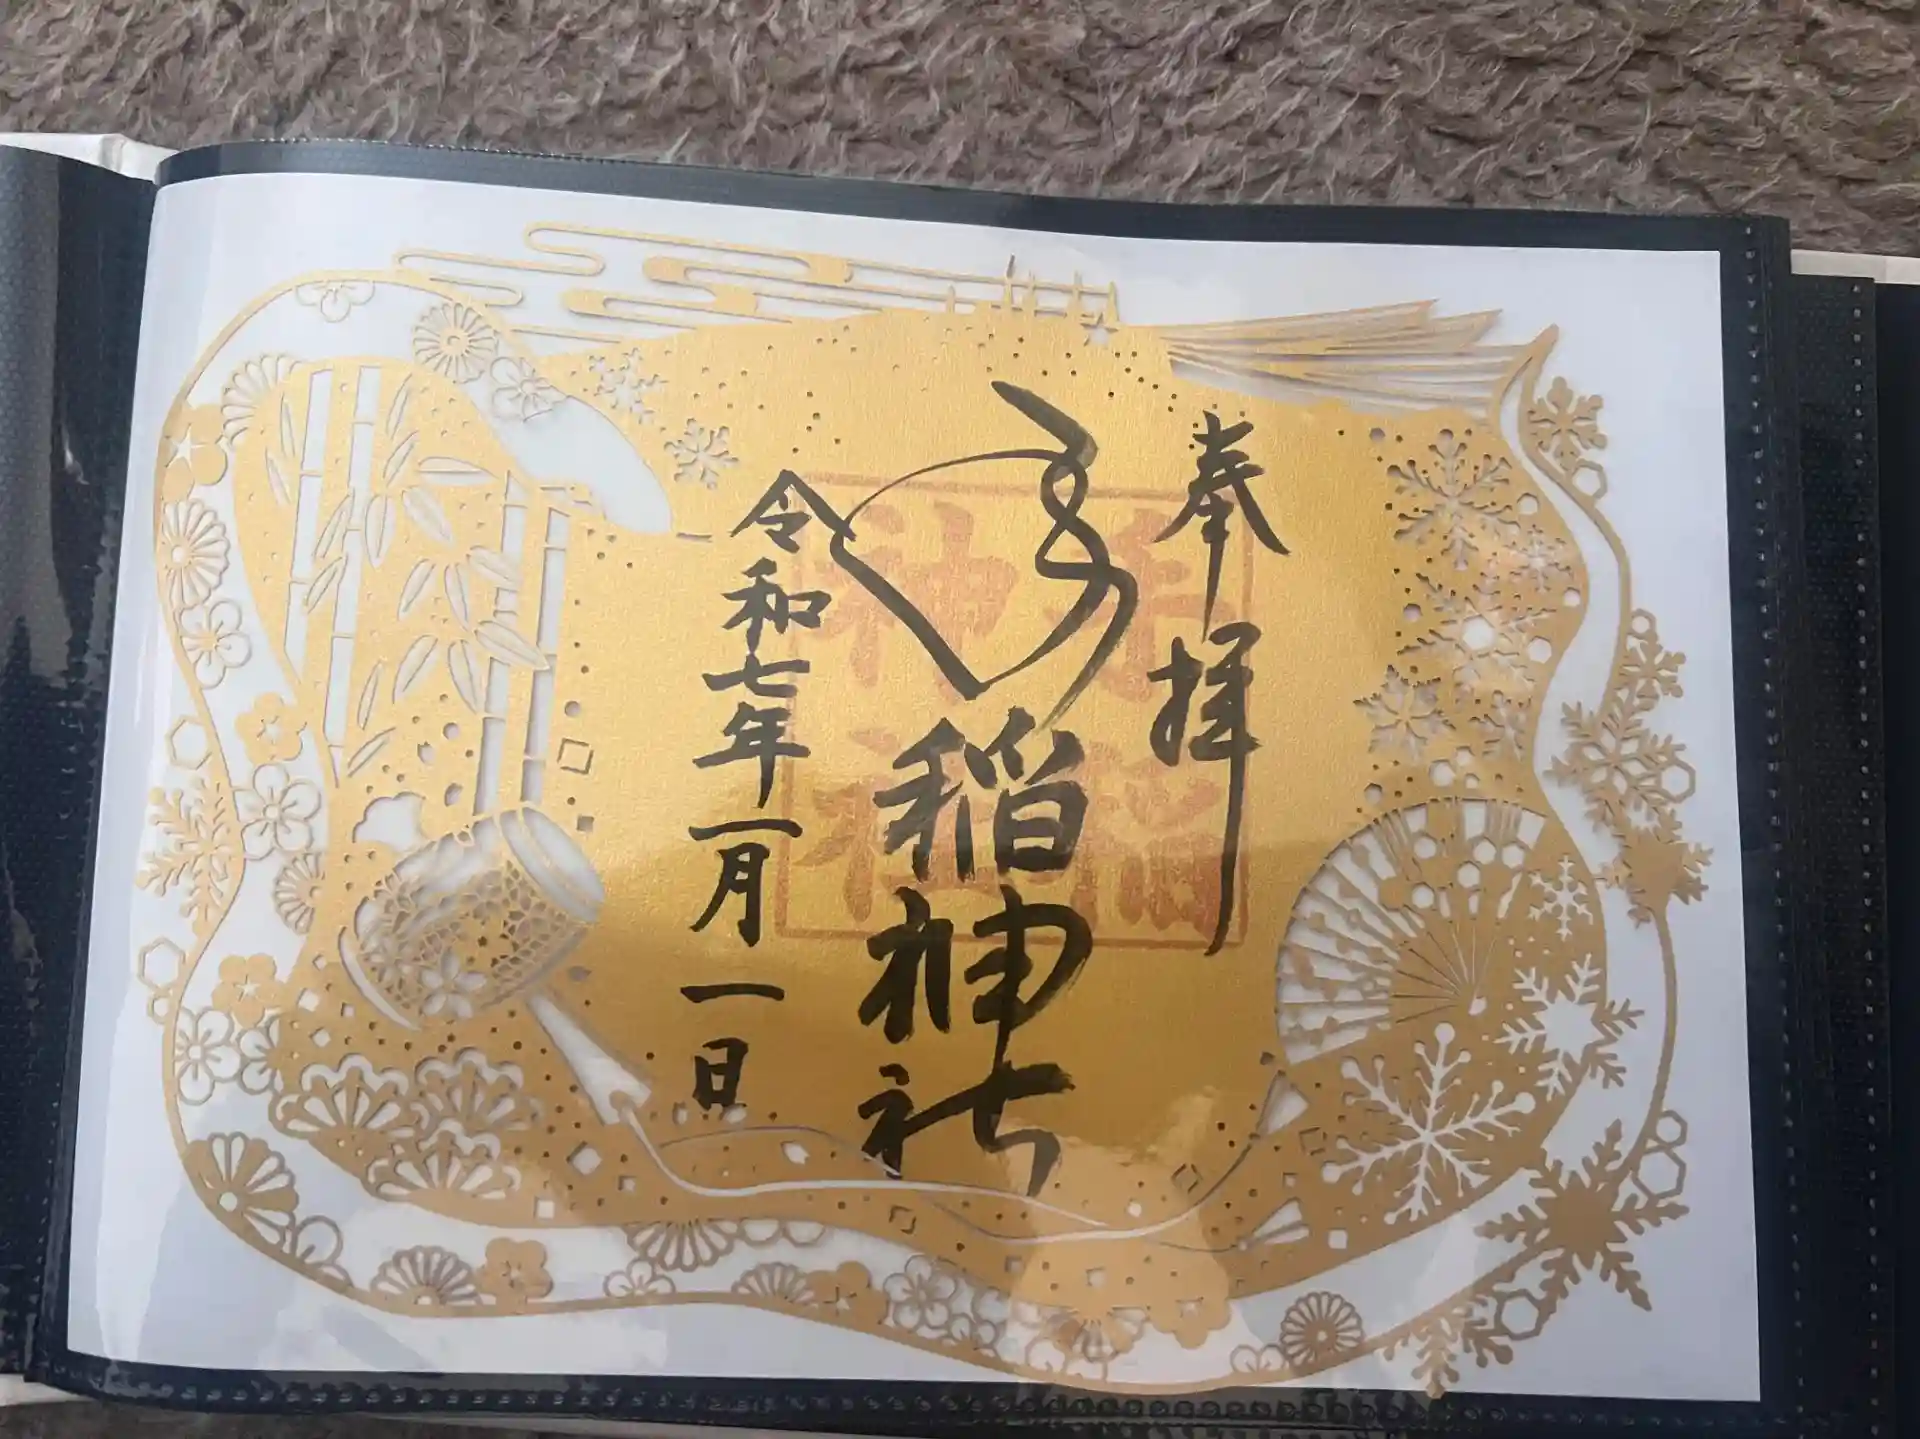 奉拝
稲神社
令和七年一月一日